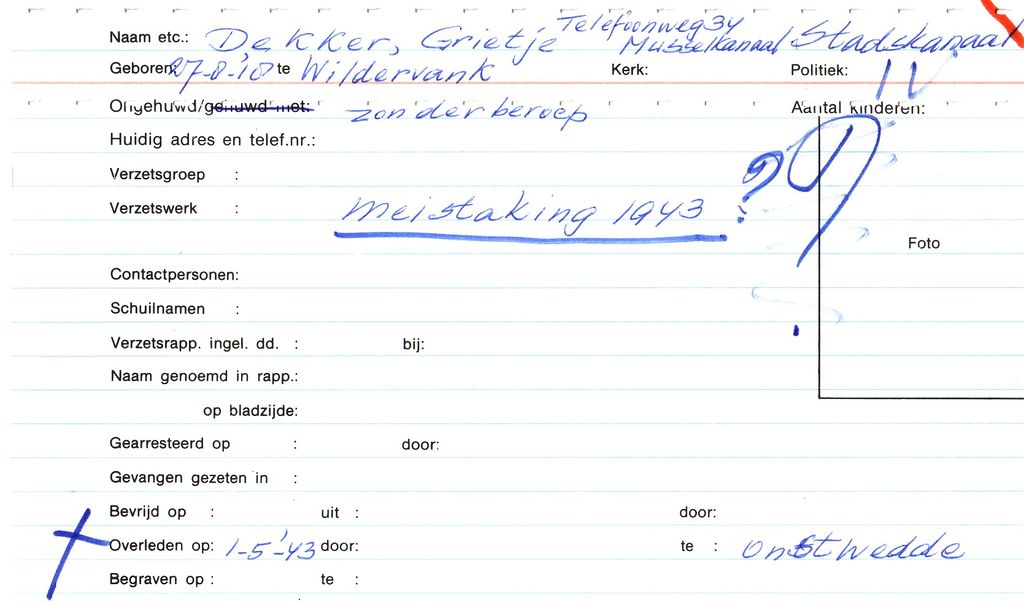 Naam etc.: Dekker, Grietje Telefoonweg 34 Musselkanaal Stadskanaal
Geboren: 27-8-'18 te Wildervank Kerk: Politiek: IV
Ongehuwd/gehuwd met: zonder beroep Aantal kinderen:
Huidig adres en telef.nr.:
Verzetsgroep :
Verzetswerk : meistaking 1943 ? ?
Foto
Contactpersonen:
Schuilnamen :
Verzetsrapp. ingel. dd. : bij:
Naam genoemd in rapp.:
op bladzijde:
Gearresteerd op : door:
Gevangen gezeten in :
Bevrijd op : uit : door:
Overleden op: 1-5-'43 door: te : Onstwedde
Begraven op : te :